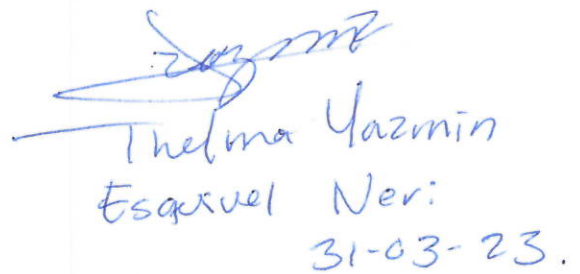 Thelma Yazmin
Esquivel Neri
31-03-23.